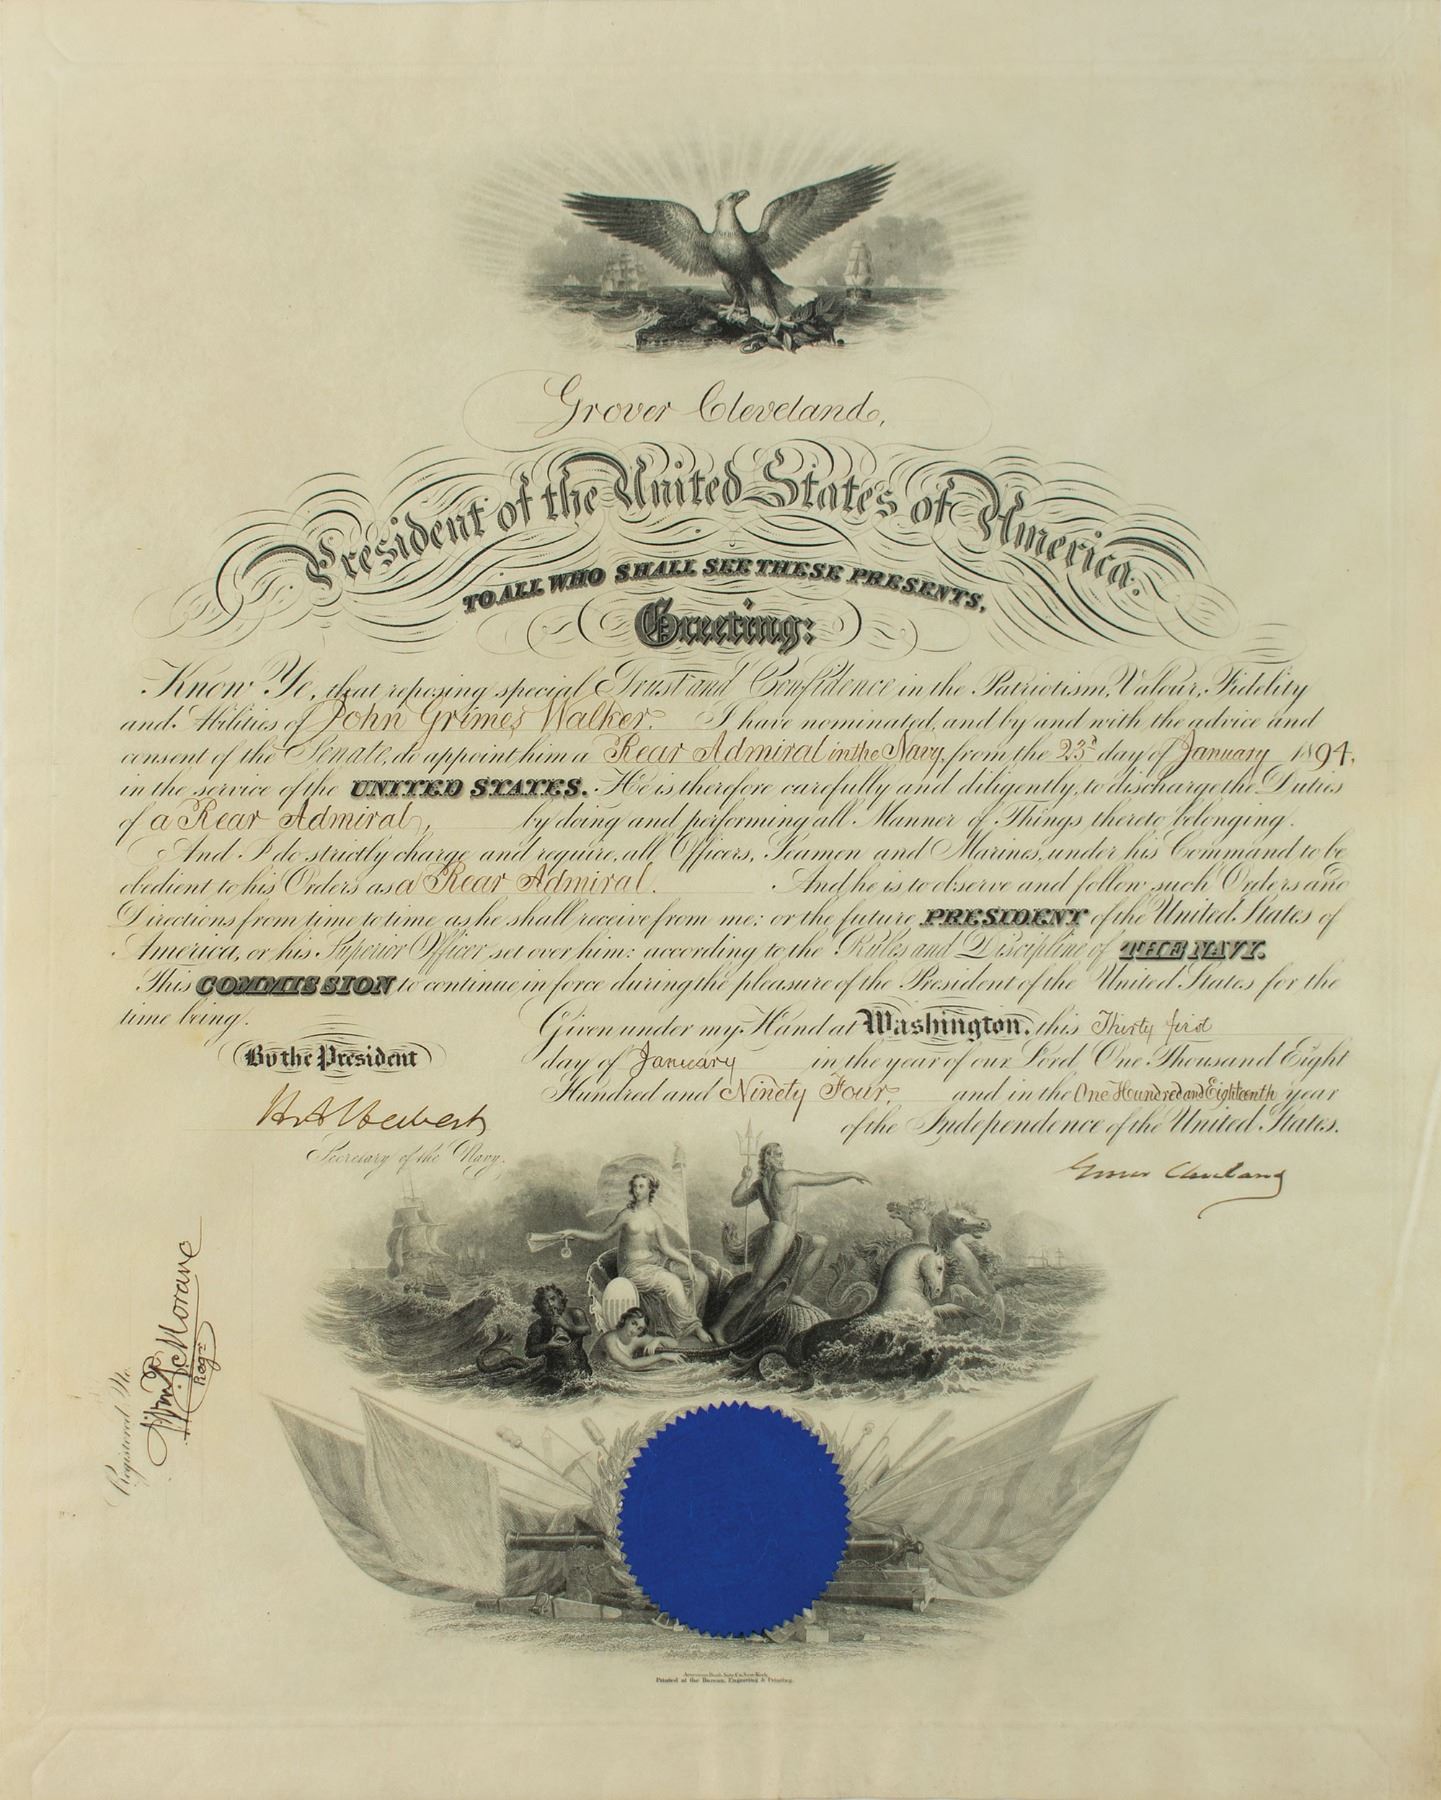 Grover Cleveland,
President of the United States of America.
TO ALL WHO SHALL SEE THESE PRESENTS,
Greeting:
Know Ye, that reposing special Trust and Confidence in the Patriotism, Valour, Fidelity
and Abilities of John Grimes Walker. I have nominated, and by and with the advice and
consent of the Senate, do appoint him a Rear Admiral in the Navy, from the 23d day of January 1894,
in the service of the UNITED STATES. He is therefore carefully and diligently, to discharge the Duties
of a Rear Admiral, by doing and performing all Manner of Things thereto belonging.
And I do strictly charge and require, all Officers, Seamen and Marines, under his Command to be
obedient to his Orders as a Rear Admiral. And he is to observe and follow such Orders and
Directions from time to time as he shall receive from me; or the future PRESIDENT of the United States of
America, or his Superior Officer set over him: according to the Rules and Discipline of THE NAVY.
This COMMISSION to continue in force during the pleasure of the President of the United States for the
time being.
Given under my Hand at Washington, this Thirty first
day of January in the year of our Lord, One Thousand Eight
Hundred and Ninety Four, and in the One Hundred and Eighteenth year
of the Independence of the United States.
By the President
Grover Cleveland
H A Herbert
Secretary of the Navy.
Registered No.
Wm. P. Moran
Regr
American Bank Note Co. New York
Printed at the Bureau, Engraving & Printing.